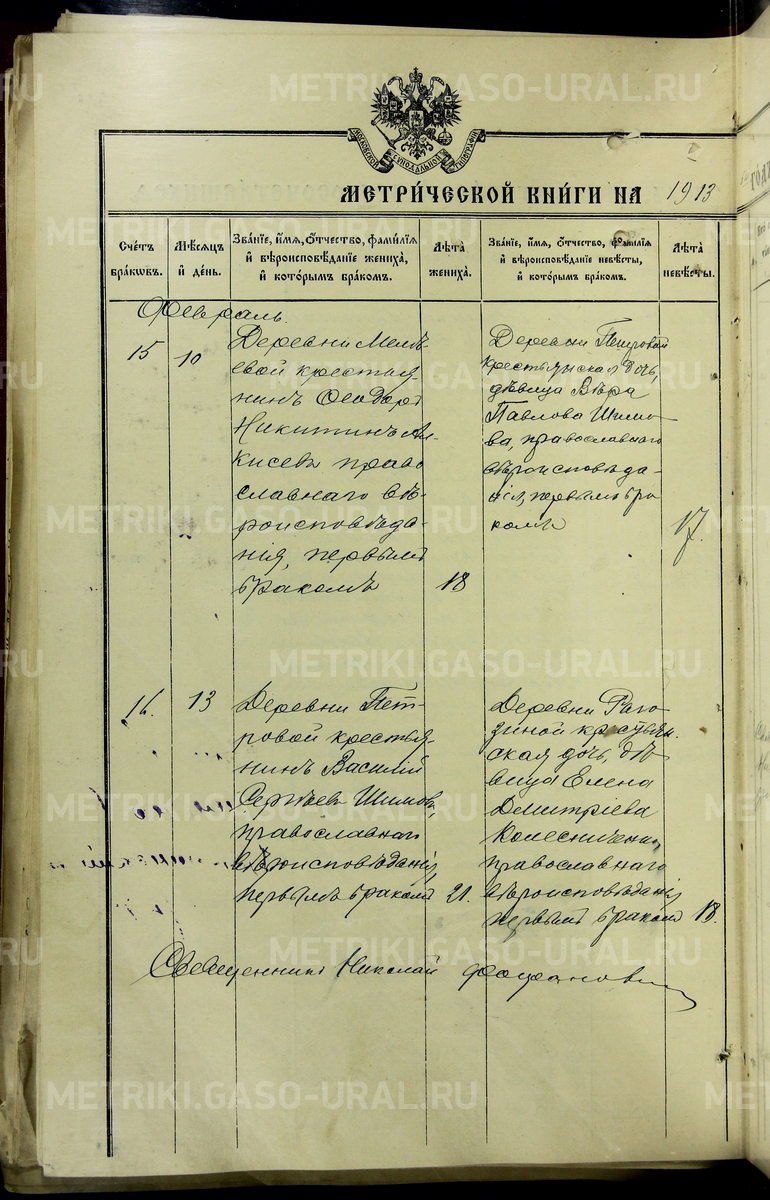 МОСКОВСКОЙ СѴНОДАЛЬНОЙ ТИПОГРАФІИ
МЕТРИ́ЧЕСКОЙ КНИ́ГИ НА 1913
Сче́тъ бра́кωвъ.
Мѣ́сяцъ и҆ де́нь.
Зва́нїе, и҆́мя, ѻ҆́тчество, фами́лїя
и҆ вѣроисповѣ́данїе жениха̀,
и҆ кото́рымъ бра́комъ.
Лѣ́та̀ жениха̀.
Зва́нїе, и҆́мя, ѻ҆́тчество, фами́лїя
и҆ вѣроисповѣ́данїе невѣ́сты,
и҆ кото́рымъ бра́комъ.
Лѣ́та̀ невѣ́сты.
Февраль.
15
10
Деревни
евой крестья
нинъ Ѳеодоръ
Никитинъ Ал
кисевъ право
славнаго вѣ
роисповѣда
нія, первымъ
бракомъ
18
Деревни Петровой
крестьянская дочь,
дѣвица Вѣра
Павлова Шимо
ва, православнаго
вѣроисповѣда
нія, первымъ бра
комъ
17.
16.
13
Деревни Пет
ровой крестья
нинъ Василій
Сергѣевъ Шимовъ,
православнаго
вѣроисповѣданія,
первымъ бракомъ
21.
Деревни Раго
диной крестьян
ская дочь, дѣ
вица Елена
Димитріева
православнаго
вѣроисповѣданія,
первымъ бракомъ
18.
Священникъ Николай
METRIKI.GASO-URAL.RU